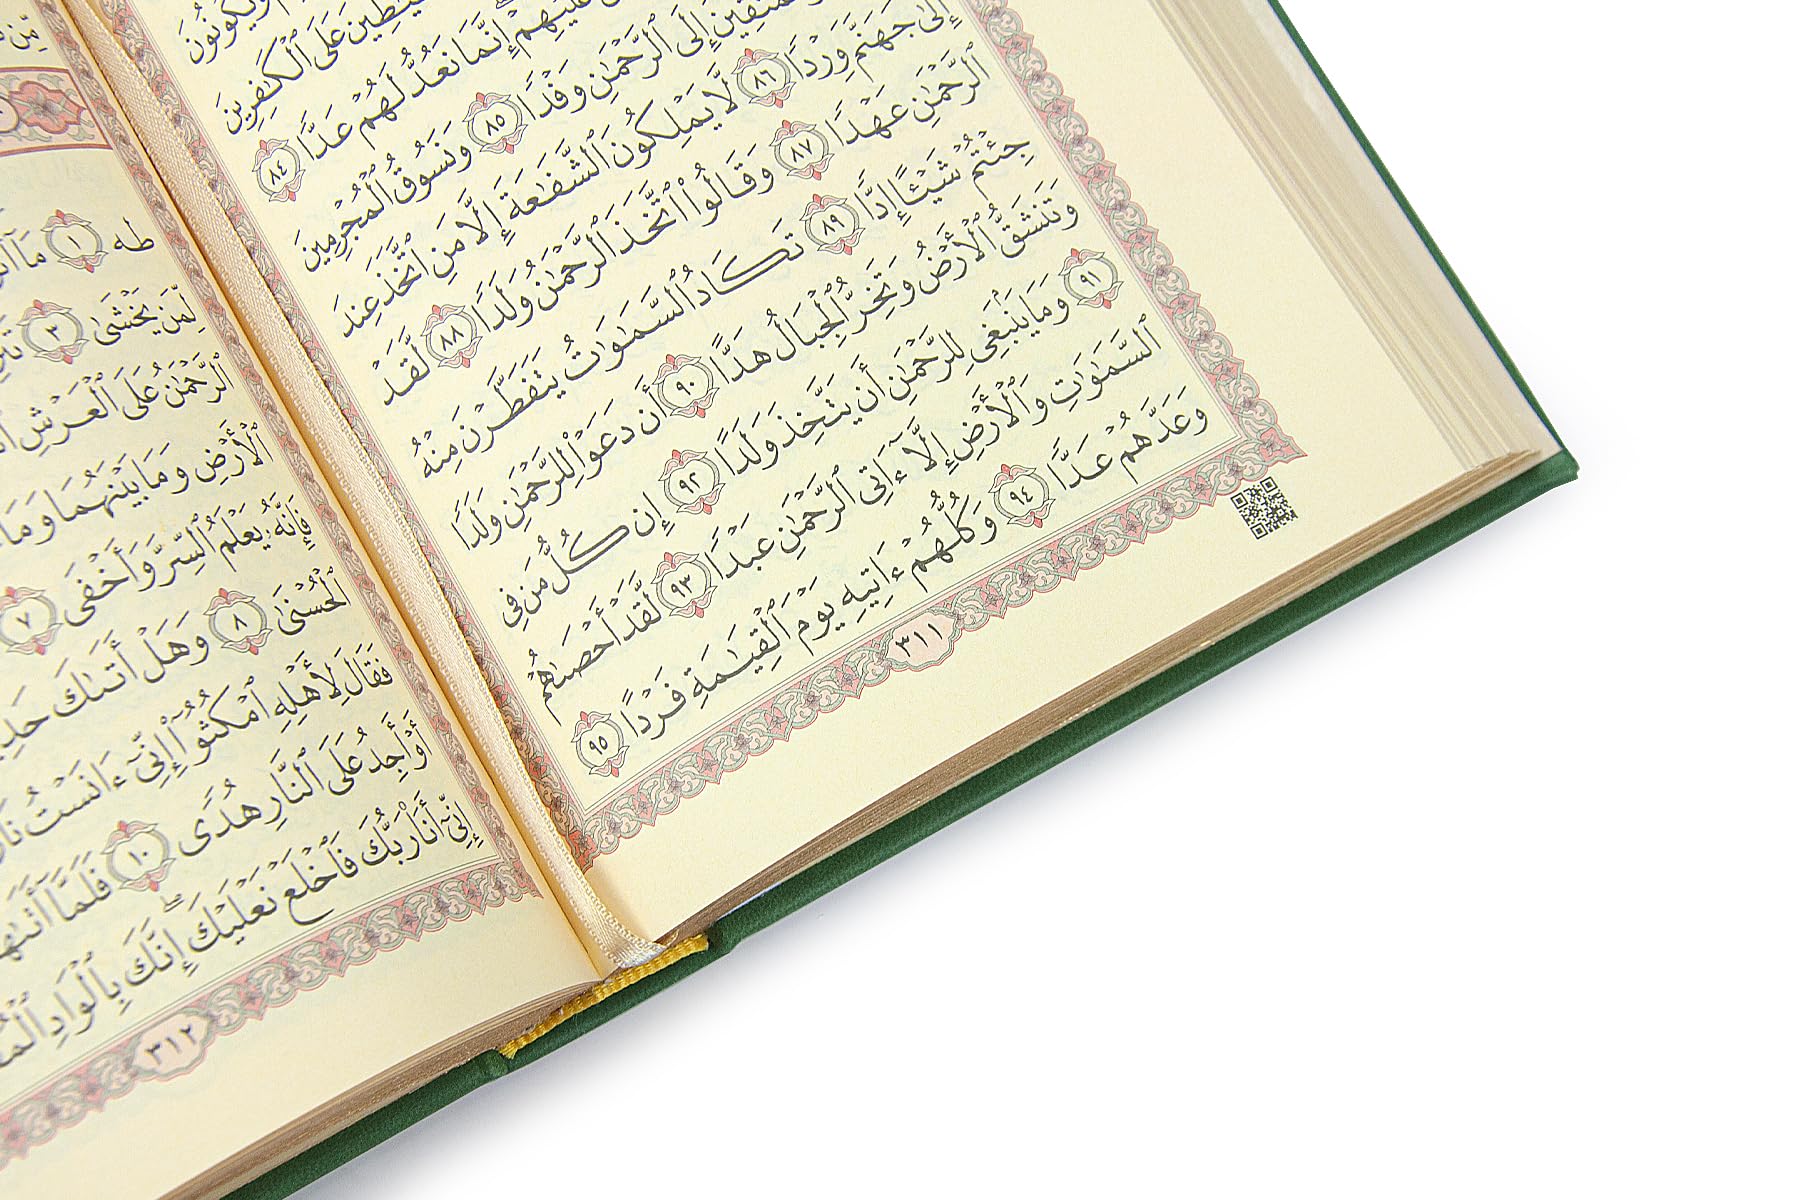 وَيَكُونُونَ
ٱلشَّيَٰطِينَ عَلَى ٱلْكَٰفِرِينَ
عَلَيْهِمْ إِنَّمَا نَعُدُّ لَهُمْ عَدًّا ٨٤
ٱلْمُتَّقِينَ إِلَى ٱلرَّحْمَٰنِ وَفْدًا ٨٥ وَنَسُوقُ ٱلْمُجْرِمِينَ
إِلَىٰ جَهَنَّمَ وِرْدًا ٨٦ لَّا يَمْلِكُونَ ٱلشَّفَٰعَةَ إِلَّا مَنِ ٱتَّخَذَ عِندَ
ٱلرَّحْمَٰنِ عَهْدًا ٨٧ وَقَالُوا۟ ٱتَّخَذَ ٱلرَّحْمَٰنُ وَلَدًا ٨٨ لَّقَدْ
جِئْتُمْ شَيْـًٔا إِدًّا ٨٩ تَكَادُ ٱلسَّمَٰوَٰتُ يَتَفَطَّرْنَ مِنْهُ
وَتَنشَقُّ ٱلْأَرْضُ وَتَخِرُّ ٱلْجِبَالُ هَدًّا ٩٠ أَن دَعَوْا۟ لِلرَّحْمَٰنِ وَلَدًا
٩١ وَمَا يَنۢبَغِى لِلرَّحْمَٰنِ أَن يَتَّخِذَ وَلَدًا ٩٢ إِن كُلُّ مَن فِى
ٱلسَّمَٰوَٰتِ وَٱلْأَرْضِ إِلَّآ ءَاتِى ٱلرَّحْمَٰنِ عَبْدًا ٩٣ لَّقَدْ أَحْصَىٰهُمْ
وَعَدَّهُمْ عَدًّا ٩٤ وَكُلُّهُمْ ءَاتِيهِ يَوْمَ ٱلْقِيَٰمَةِ فَرْدًا ٩٥
٣١١
طه ١ مَآ
لِّمَن يَخْشَىٰ ٣
ٱلرَّحْمَٰنُ عَلَى ٱلْعَرْشِ
ٱلْأَرْضِ وَمَا بَيْنَهُمَا وَمَا
فَإِنَّهُۥ يَعْلَمُ ٱلسِّرَّ وَأَخْفَى ٧
ٱلْحُسْنَىٰ ٨ وَهَلْ أَتَىٰكَ
فَقَالَ لِأَهْلِهِ ٱمْكُثُوٓا۟ إِنِّىٓ ءَانَسْتُ
أَوْ أَجِدُ عَلَى ٱلنَّارِ هُدًى ١٠ فَلَمَّآ
إِنِّىٓ أَنَا۠ رَبُّكَ فَٱخْلَعْ نَعْلَيْكَ إِنَّكَ بِٱلْوَادِ
٣١٢